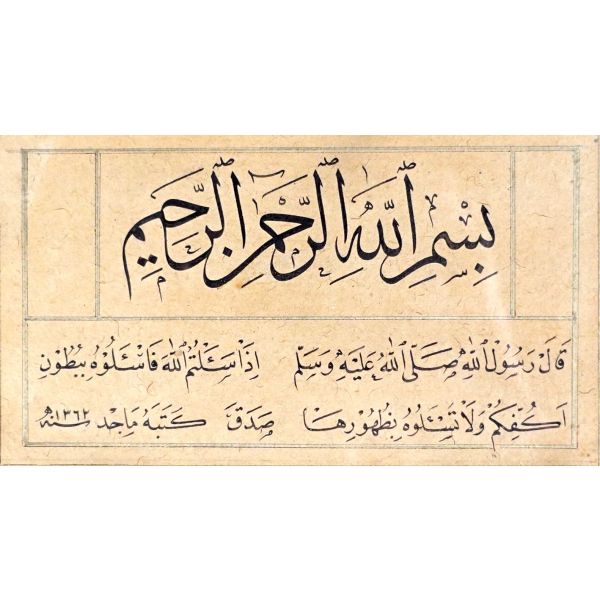 بِسْمِ اللّٰهِ الرَّحْمٰنِ الرَّحِيمِ
قَالَ رَسُولُ اللّٰهِ صَلَّى اللّٰهُ عَلَيْهِ وَسَلَّمَ اِذَا سَئَلْتُمُ اللّٰهَ فَاسْئَلُوهُ بِبُطُوْنِ
اَكُفِّكُمْ وَلَا تَسْئَلُوهُ بِظُهُوْرِهَا صَدَقَ كَتَبَهُ مَاجِد سنه ١٣٦٢